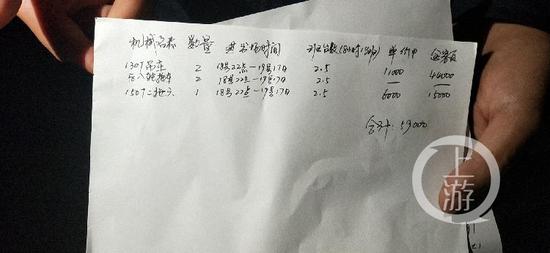 机械名称 数量 进出场时间 班台数(8小时1台班) 单价甲 金客额
130T吊车 2 18号22点-19号17点 2.5 11000 44000
2 18号22点-19号17点 2.5
150T 1 18号22点-19号17点 2.5 6000 15000
合计:59000
上游